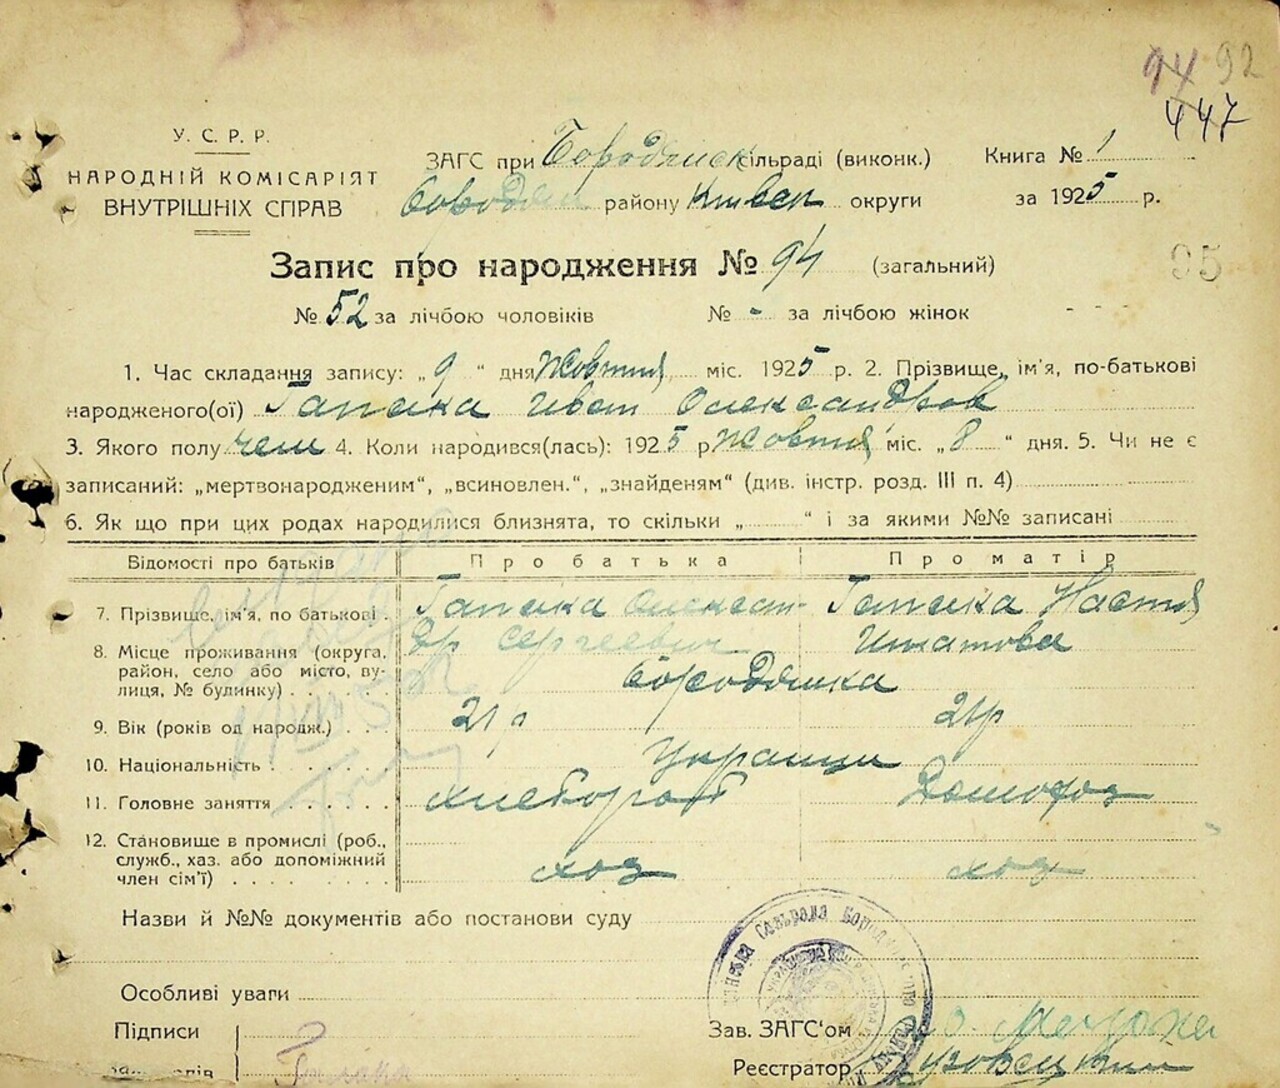 94 92
447
У. С. Р. Р.
НАРОДНІЙ КОМІСАРІЯТ
ВНУТРІШНІХ СПРАВ
ЗАГС при Бородянск сільраді (виконк.) Книга № 1
Бородян району Київськ округи за 1925 р.
Запис про народження № 94 (загальний)
95
№ 52 за лічбою чоловіків № - за лічбою жінок
1. Час складання запису: „ 9 “ дня Жовтня міс. 1925 р. 2. Прізвище, ім'я, по-батькові
народженого(ої) Гапеика Иван Олександров
3. Якого полу чол 4. Коли народився(лась): 1925 р Жовтня міс. „ 8 “ дня. 5. Чи не є
записаний: „мертвонародженим“, „всиновлен.“, „знайденям“ (див. інстр. розд. III п. 4)
6. Як що при цих родах народилися близнята, то скільки „ “ і за якими №№ записані
Відомості про батьків Про батька Про матір
7. Прізвище, ім'я, по батькові Гапеика Олексан- Гапеика Настя
др Сергеевич Игнатова
8. Місце проживання (округа,
район, село або місто, ву-
лиця, № будинку) Бородянка
9. Вік (років од народж.) 21 р 21 р
10. Національність Украинци
11. Головне заняття хлебороб Домохоз
12. Становище в промислі (роб.,
служб., хаз. або допоміжний
член сім'ї) хоз хоз
Назви й №№ документів або постанови суду
Особливі уваги
Підписи
Зав. ЗАГС'ом
Реєстратор